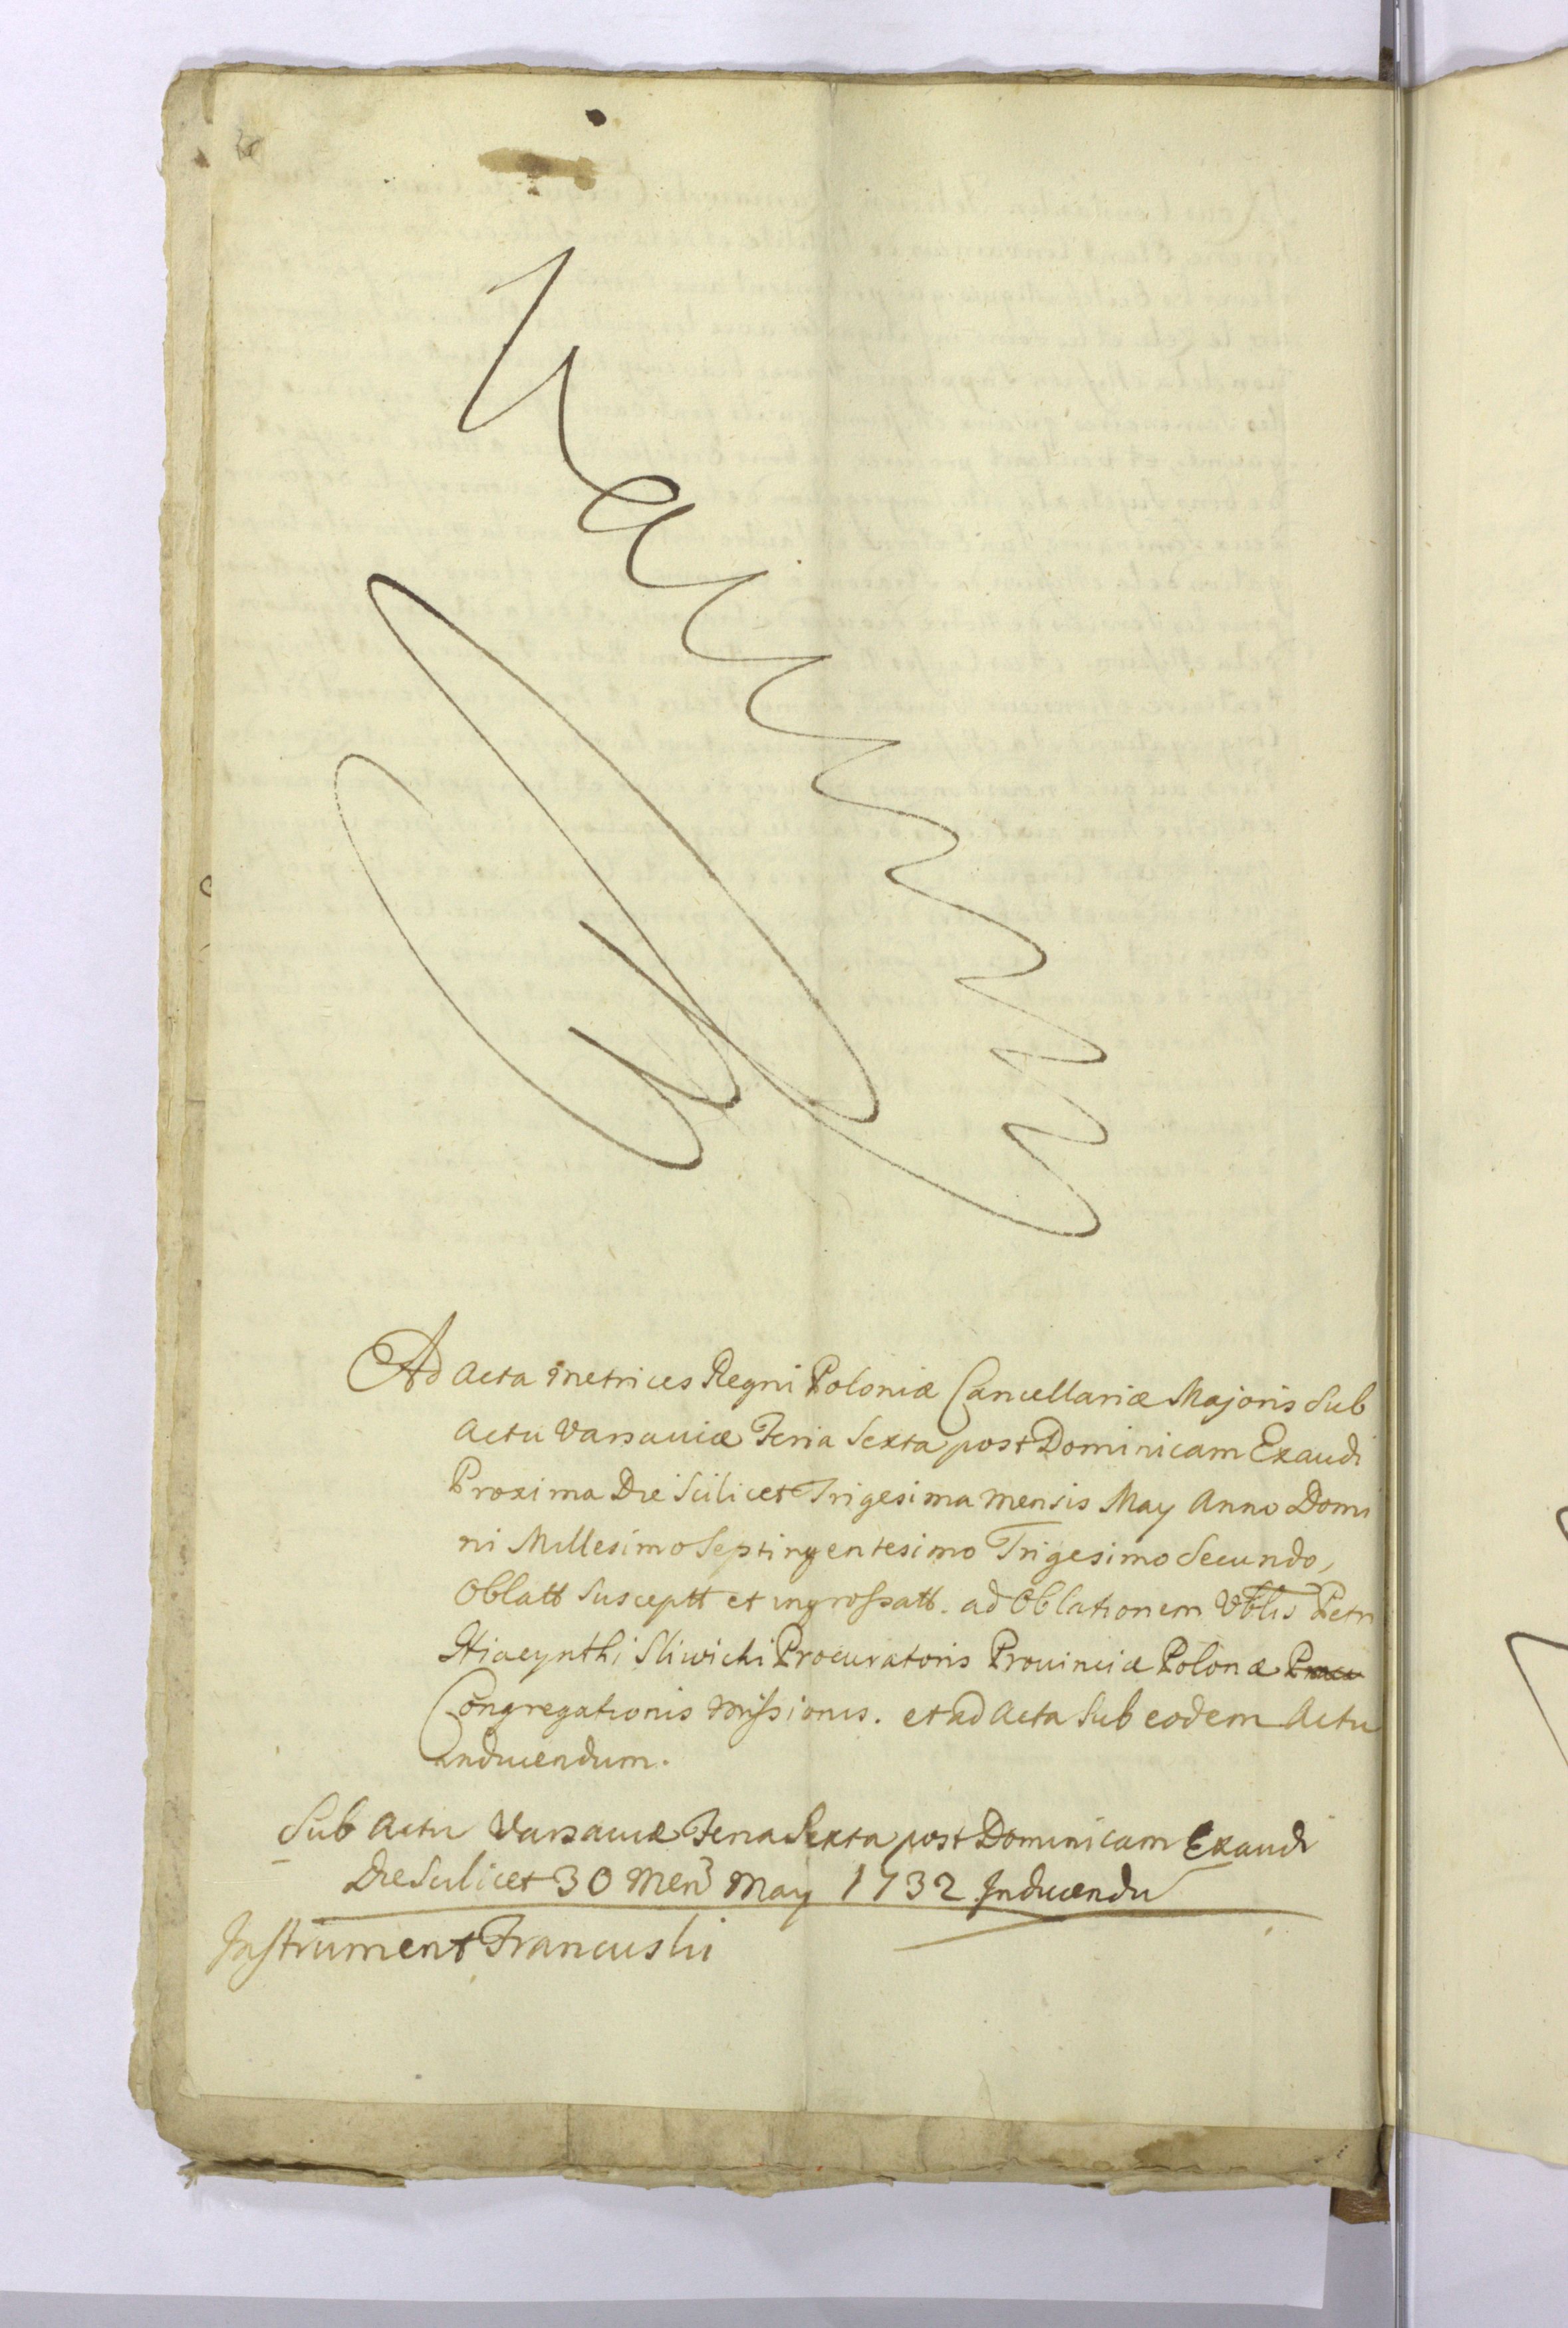 Ad Acta metrices Regni Poloniæ Cancellariæ Majoris Sub
Actu Varsaviæ Feria Sexta post Dominicam Exaudi
Proxima Die Scilicet Trigesima mensis May Anno Domi
ni Millesimo Septingentesimo Trigesimo Secundo,
Oblatt Susceptt et ingrossatt. ad Oblationem Vblis Petri
Hiacynthi Sliwicki Procuratoris Provinciæ Polonæ
Congregationis Missionis. et ad Acta Sub eodem Actu
inducendum.
Sub Actu Varsaviæ Feria Sexta post Dominicam Exaudi
Die Scilicet 30 Men̄ May 1732 Inducendū
Instrument Francuski